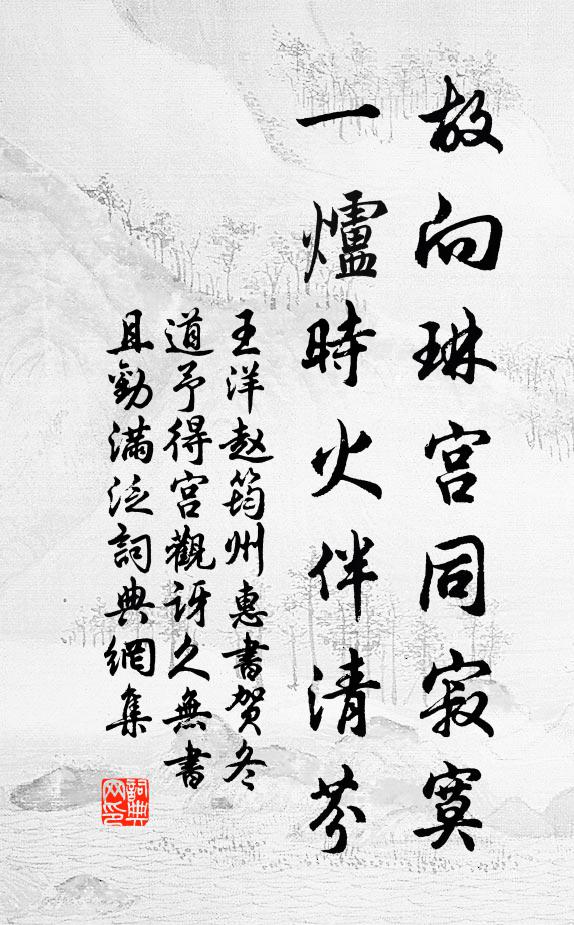 故向琳宫同寂寞
一爐時火伴清芬
王洋赵筠州惠書贺冬
道予得宫觀訝久無書
且勸滿泛詞典網集
詞典
网印